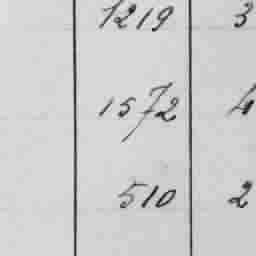 1219 3
1572 4
510 2